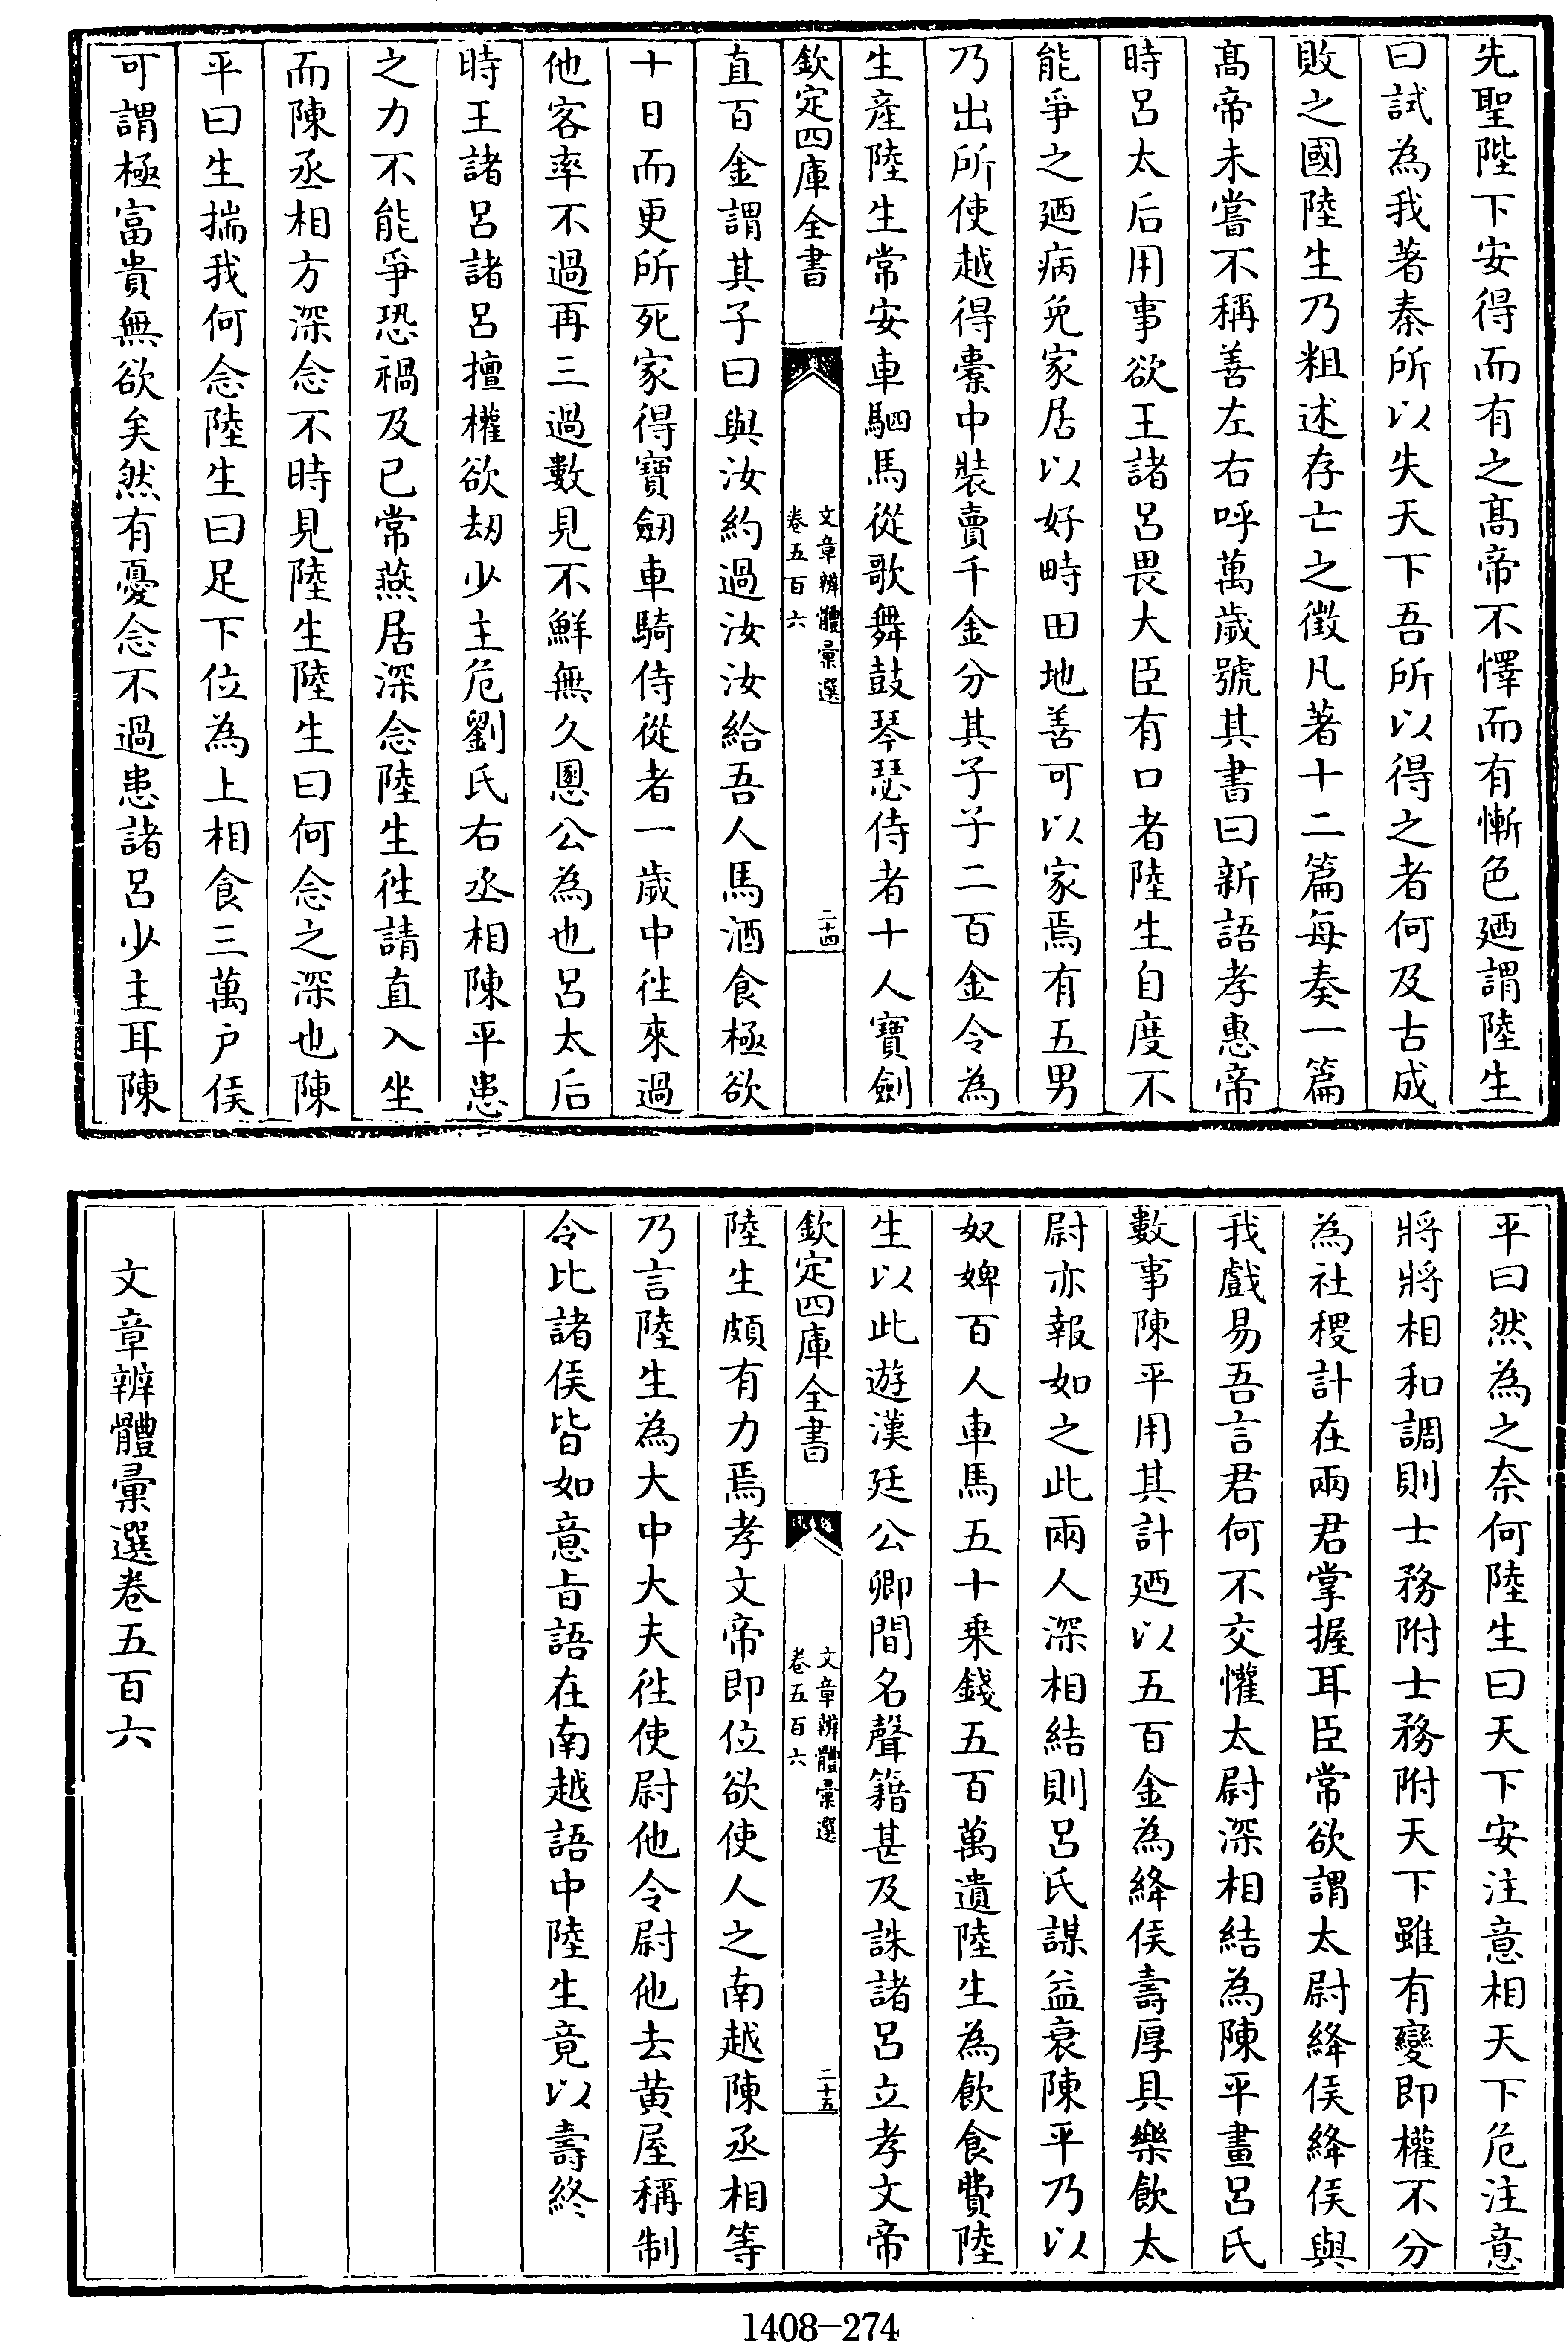 先聖陛下安得而有之髙帝不懌而有慚色廼謂陸生
曰試為我著秦所以失天下吾所以得之者何及古成
敗之國陸生乃粗述存亡之徴凡著十二篇每奏一篇
髙帝未嘗不稱善左右呼萬歲號其書曰新語孝惠帝
時呂太后用事欲王諸呂畏大臣有口者陸生自度不
能爭之廼病免家居以好畤田地善可以家焉有五男
乃出所使越得橐中裝賣千金分其子子二百金令為
生産陸生常安車駟馬從歌舞鼓琴瑟侍者十人寶劍
欽定四庫全書
文章辨體彚選
卷五百六
二十四
直百金謂其子曰與汝約過汝汝給吾人馬酒食極欲
十日而更所死家得寶劒車騎侍從者一歲中徃來過
他客率不過再三過數見不鮮無久慁公為也呂太后
時王諸呂諸呂擅權欲刼少主危劉氏右丞相陳平患
之力不能爭恐禍及已常燕居深念陸生徃請直入坐
而陳丞相方深念不時見陸生陸生曰何念之深也陳
平曰生揣我何念陸生曰足下位為上相食三萬户侯
可謂極富貴無欲矣然有憂念不過患諸呂少主耳陳
平曰然為之奈何陸生曰天下安注意相天下危注意
將將相和調則士務附士務附天下雖有變即權不分
為社稷計在兩君掌握耳臣常欲謂太尉絳侯絳侯與
我戲易吾言君何不交懽太尉深相結為陳平畫呂氏
數事陳平用其計廼以五百金為絳侯壽厚具樂飲太
尉亦報如之此兩人深相結則呂氏謀益衰陳平乃以
奴婢百人車馬五十乗錢五百萬遺陸生為飲食費陸
生以此遊漢廷公卿間名聲籍甚及誅諸呂立孝文帝
欽定四庫全書
文章辨體彚選
卷五百六
二十五
陸生頗有力焉孝文帝即位欲使人之南越陳丞相等
乃言陸生為大中大夫徃使尉他令尉他去黄屋稱制
令比諸侯皆如意旨語在南越語中陸生竟以壽終
文章辨體彚選卷五百六
1408-274